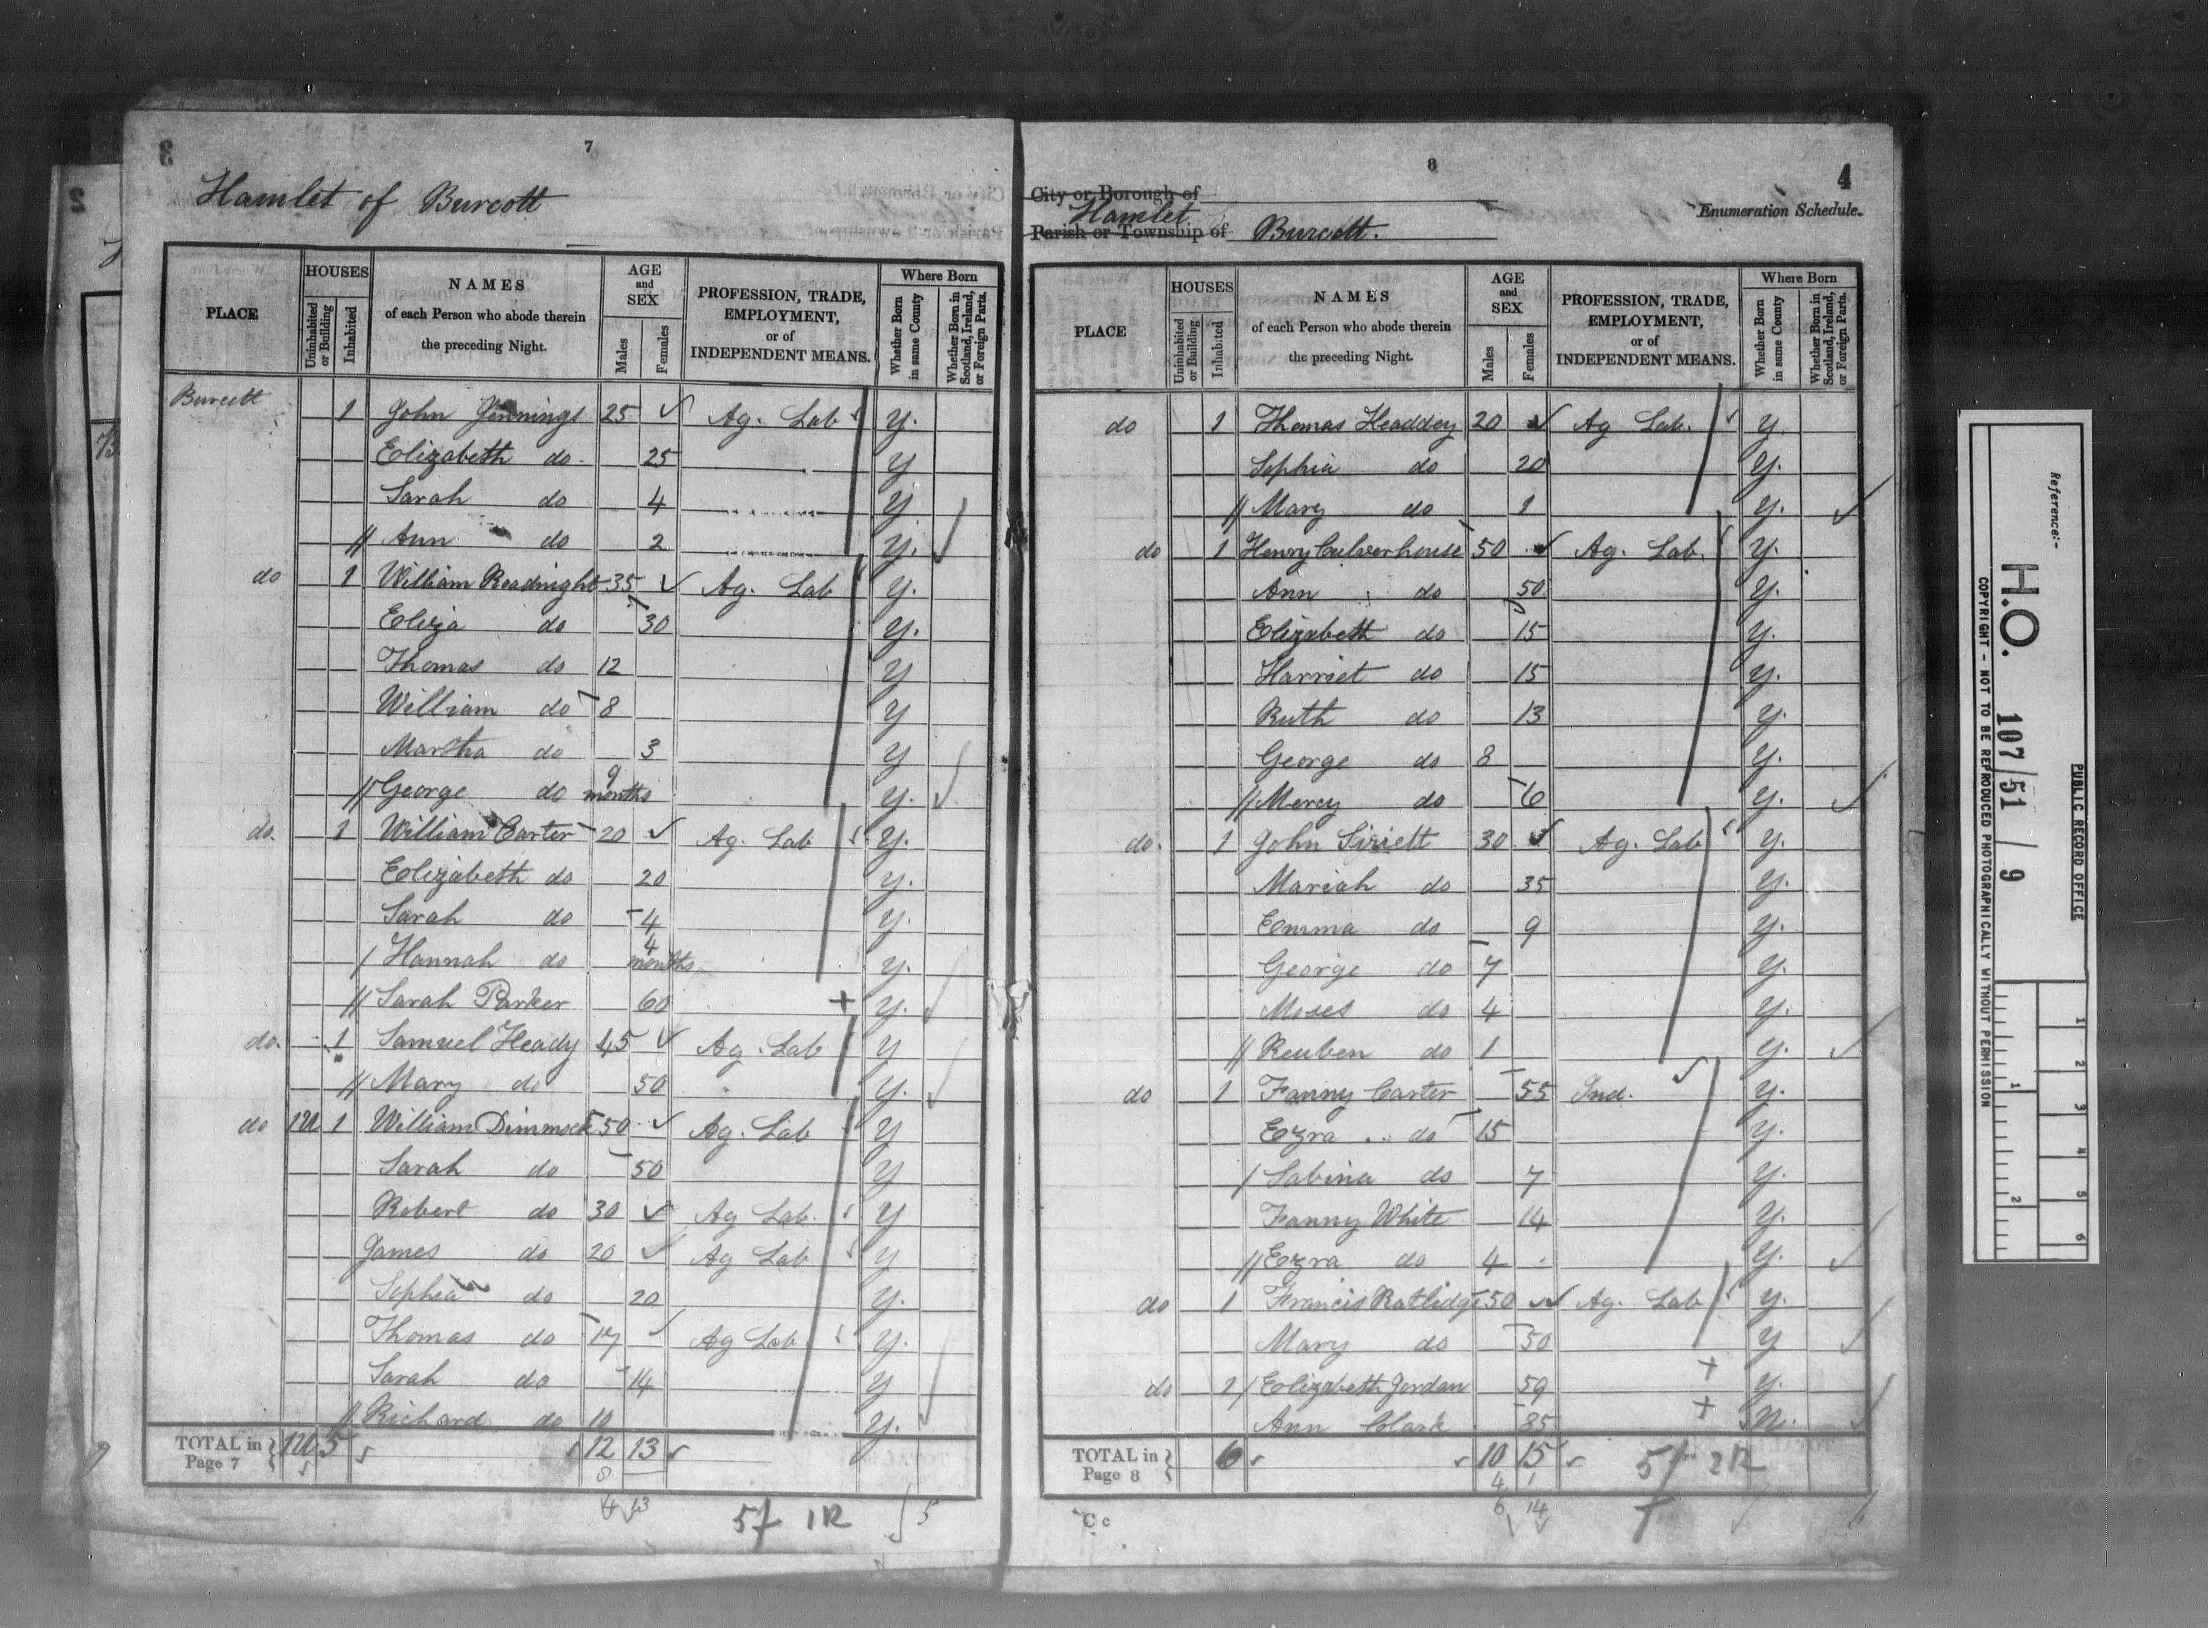 7
Hamlet of Burcott
PLACE
HOUSES
Uninhabited or Building
Inhabited
NAMES
of each Person who abode therein
the preceding Night.
AGE
and
SEX
Males
Females
PROFESSION, TRADE,
EMPLOYMENT,
or of
INDEPENDENT MEANS.
Where Born
Whether Born in same County
Whether Born in Scotland, Ireland, or Foreign Parts.
Burcott 1 John Jennings 25 Ag. Lab y.
Elizabeth do 25 y
Sarah do 4 y
Ann do 2 y.
do 1 William Readnight 35 Ag. Lab y.
Eliza do 30 y.
Thomas do 12 y
William do 8 y
Martha do 3 y
George do 9 months y.
do. 1 William Carter 20 Ag. Lab y.
Elizabeth do 20 y.
Sarah do 4 y.
Hannah do 4 months y.
Sarah Parker 60 + y.
do. 1 Samuel Heady 45 Ag. Lab y
Mary do 50 y.
do 1U 1 William Dimmock 50 Ag. Lab y
Sarah do 50 y
Robert do 30 Ag Lab. y
James do 20 Ag Lab y
Sophia do 20 y.
Thomas do 17 Ag Lab y.
Sarah do 14 y
Richard do 10 y.
TOTAL in Page 7 1U 5 12 13
8
4 13
5f 1R 5
8
4
City or Borough of
Hamlet
Parish or Township of Burcott.
Enumeration Schedule.
PLACE
HOUSES
Uninhabited or Building
Inhabited
NAMES
of each Person who abode therein
the preceding Night.
AGE
and
SEX
Males
Females
PROFESSION, TRADE,
EMPLOYMENT,
or of
INDEPENDENT MEANS.
Where Born
Whether Born in same County
Whether Born in Scotland, Ireland, or Foreign Parts.
do 1 Thomas Headdey 20 Ag Lab. y.
Sophia do 20 y.
Mary do 1 y.
do 1 Henry Culverhouse 50 Ag. Lab. y.
Ann do 50 y.
Elizabeth do 15 y.
Harriet do 15 y.
Ruth do 13 y.
George do 8 y.
Mercy do 6 y.
do. 1 John Siriett 30 Ag. Lab y.
Mariah do 35 y.
Emma do 9 y.
George do 7 y.
Moses do 4 y.
Reuben do 1 y.
do 1 Fanny Carter 55 Ind. y.
Ezra do 15 y.
Sabina do 7 y.
Fanny White 14 y.
Ezra do 4 y.
do 1 Francis Ratlidge 50 Ag. Lab y.
Mary do 50 y
do 1 Elizabeth Jordan 59 + y.
Ann Clark 85 + N.
TOTAL in Page 8 6 10 15 5f 2R
4 1
6 14
C c
Reference:-
H.O. 107/51/9
PUBLIC RECORD OFFICE
COPYRIGHT - NOT TO BE REPRODUCED PHOTOGRAPHICALLY WITHOUT PERMISSION
1 2 3 4 5 6
1 2